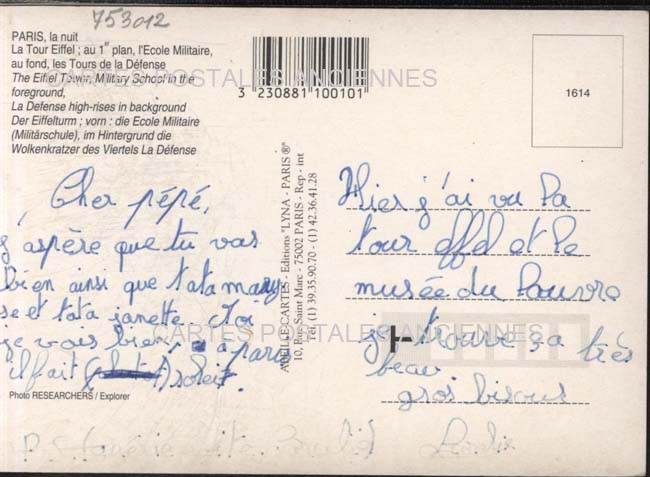 753012
PARIS, la nuit
La Tour Eiffel ; au 1er plan, l'Ecole Militaire,
au fond, les Tours de la Défense
The Eiffel Tower, Military School in the
foreground,
La Defense high-rises in background
Der Eiffelturm ; vorn : die Ecole Militaire
(Militärschule), im Hintergrund die
Wolkenkratzer des Viertels La Défense
3 230881 100101
1614
CARTES POSTALES ANCIENNES
Cher pépé,
j'aspère que tu vas
bien ainsi que tata mary
se et tata janette. Toi
je vais bien à paris
il fait soleil.
Photo RESEARCHERS / Explorer
ABEILLE-CARTES - Editions "LYNA - PARIS"®
10, Rue Saint Marc - 75002 PARIS - Rep - int
Tél. (1) 39.35.90.70 - (1) 42.36.41.28
Hier j'ai vu la
tour effel et le
musée du Louvre
je trouve ça très
beau
gros bisous
CARTES POSTALES ANCIENNES